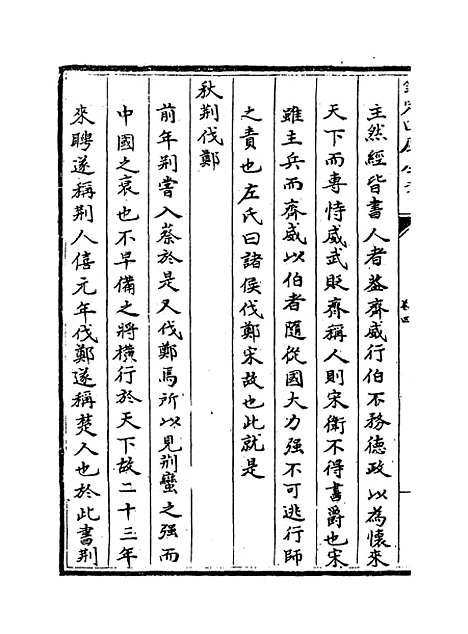 主然經皆書人者葢齊威行伯不務德政以為懷來
天下而專恃威武貶齊稱人則宋衛不得書爵也宋
雖主兵而齊威以伯者隨從國大力强不可逃行師
之責也左氏曰諸侯伐鄭宋故也此就是
秋荆伐鄭
前年荆嘗入蔡於是又伐鄭焉所以見荆蠻之强而
中國之衰也不早備之將橫行於天下故二十三年
來聘遂稱荆人僖元年伐鄭遂稱楚人也於此書荆